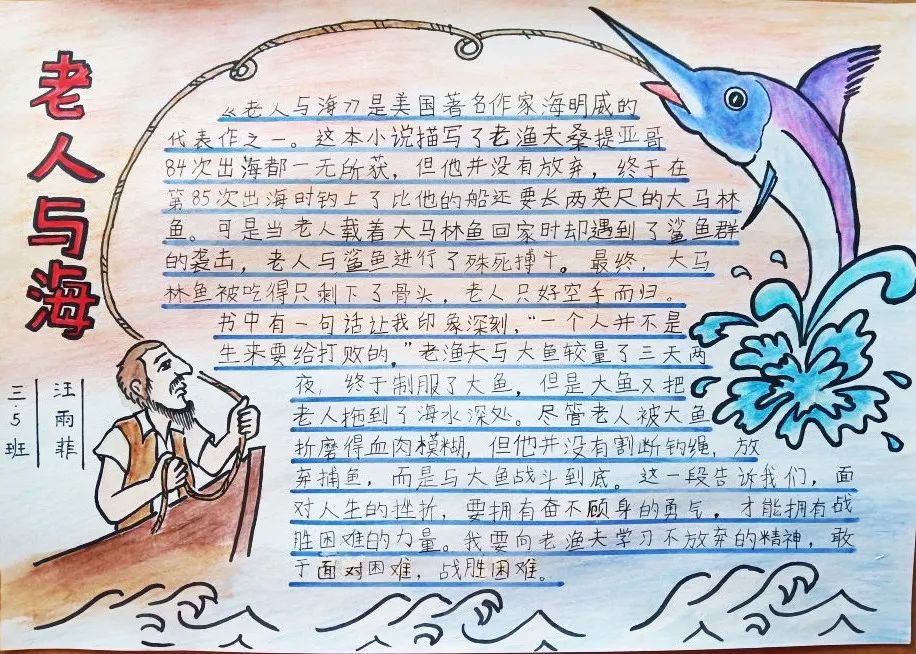 老人与海
《老人与海》是美国著名作家海明威的
代表作之一。这本小说描写了老渔夫桑提亚哥
84次出海都一无所获，但他并没有放弃，终于在
第85次出海时钓上了比他的船还要长两英尺的大马林
鱼。可是当老人载着大马林鱼回家时却遇到了鲨鱼群
的袭击，老人与鲨鱼进行了殊死搏斗。最终，大马
林鱼被吃得只剩下了骨头，老人只好空手而归。
书中有一句话让我印象深刻，“一个人并不是
生来要给打败的，”老渔夫与大鱼较量了三天两
夜，终于制服了大鱼，但是大鱼又把
老人拖到了海水深处。尽管老人被大鱼
折磨得血肉模糊，但他并没有割断钓绳，放
弃捕鱼，而是与大鱼战斗到底。这一段告诉我们，面
对人生的挫折，要拥有奋不顾身的勇气，才能拥有战
胜困难的力量。我要向老渔夫学习不放弃的精神，敢
于面对困难，战胜困难。
三.5班
汪雨菲